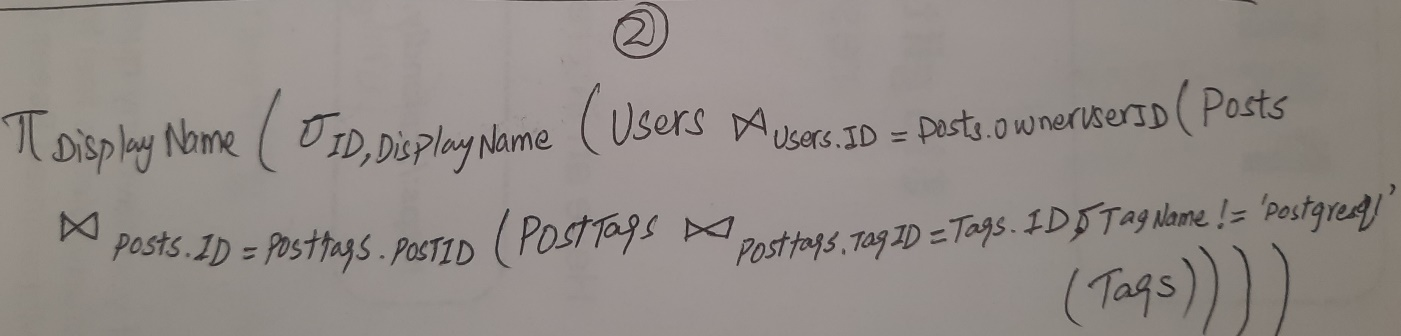 ②
π DisplayName ( σ ID, DisplayName ( Users ⋈ Users.ID = Posts.owneruserID ( Posts
⋈ Posts.ID = Posttags.POSTID ( PostTags ⋈ Posttags.TagID = Tags.ID σ TagName != 'Postgresql'
(Tags))))